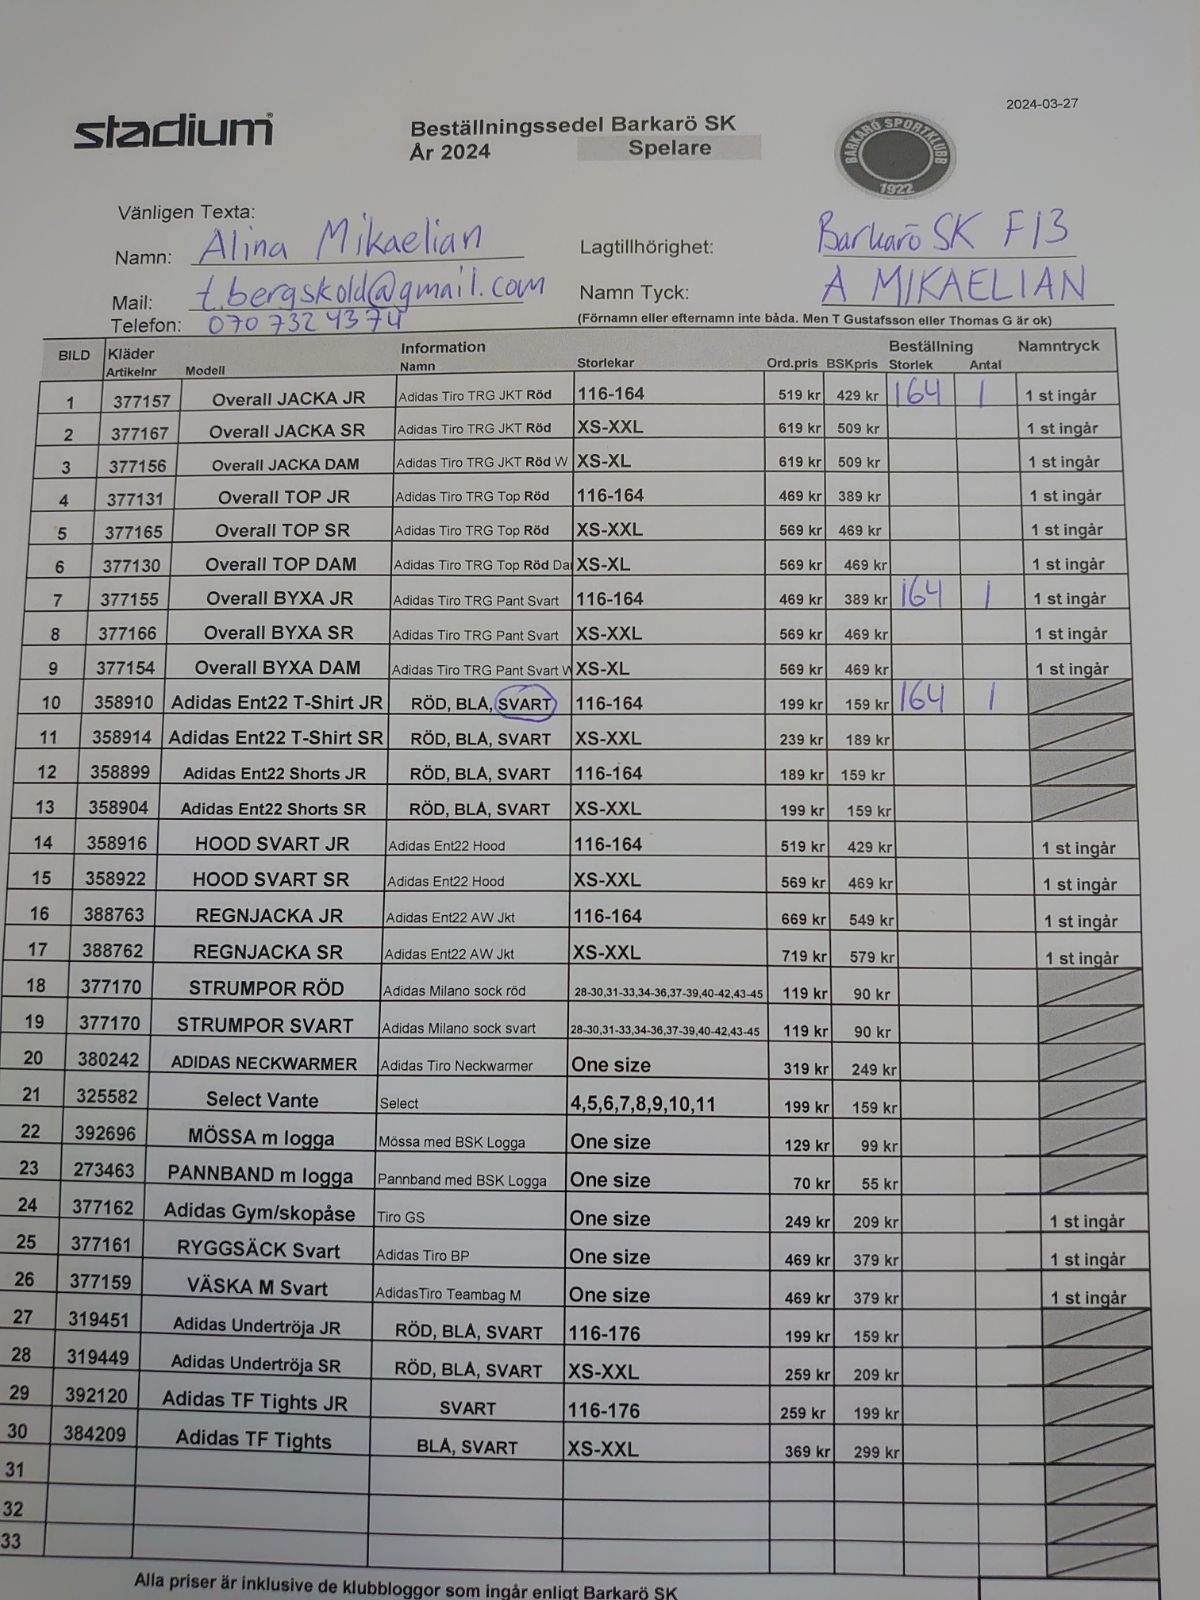 2024-03-27
stadium
Beställningssedel Barkarö SK
År 2024 Spelare
BARKARÖ SPORTKLUBB
1922
Vänligen Texta:
Namn: Alina Mikaelian Lagtillhörighet: Barkarö SK F13
Mail: t.bergskold@gmail.com Namn Tyck: A MIKAELIAN
Telefon: 070 732 4374 (Förnamn eller efternamn inte båda. Men T Gustafsson eller Thomas G är ok)
BILD Kläder Information Beställning Namntryck
Artikelnr Modell Namn Storlekar Ord.pris BSKpris Storlek Antal
1 377157 Overall JACKA JR Adidas Tiro TRG JKT Röd 116-164 519 kr 429 kr 164 1 1 st ingår
2 377167 Overall JACKA SR Adidas Tiro TRG JKT Röd XS-XXL 619 kr 509 kr 1 st ingår
3 377156 Overall JACKA DAM Adidas Tiro TRG JKT Röd W XS-XL 619 kr 509 kr 1 st ingår
4 377131 Overall TOP JR Adidas Tiro TRG Top Röd 116-164 469 kr 389 kr 1 st ingår
5 377165 Overall TOP SR Adidas Tiro TRG Top Röd XS-XXL 569 kr 469 kr 1 st ingår
6 377130 Overall TOP DAM Adidas Tiro TRG Top Röd Da XS-XL 569 kr 469 kr 1 st ingår
7 377155 Overall BYXA JR Adidas Tiro TRG Pant Svart 116-164 469 kr 389 kr 164 1 1 st ingår
8 377166 Overall BYXA SR Adidas Tiro TRG Pant Svart XS-XXL 569 kr 469 kr 1 st ingår
9 377154 Overall BYXA DAM Adidas Tiro TRG Pant Svart W XS-XL 569 kr 469 kr 1 st ingår
10 358910 Adidas Ent22 T-Shirt JR RÖD, BLÅ, SVART 116-164 199 kr 159 kr 164 1
11 358914 Adidas Ent22 T-Shirt SR RÖD, BLÅ, SVART XS-XXL 239 kr 189 kr
12 358899 Adidas Ent22 Shorts JR RÖD, BLÅ, SVART 116-164 189 kr 159 kr
13 358904 Adidas Ent22 Shorts SR RÖD, BLÅ, SVART XS-XXL 199 kr 159 kr
14 358916 HOOD SVART JR Adidas Ent22 Hood 116-164 519 kr 429 kr 1 st ingår
15 358922 HOOD SVART SR Adidas Ent22 Hood XS-XXL 569 kr 469 kr 1 st ingår
16 388763 REGNJACKA JR Adidas Ent22 AW Jkt 116-164 669 kr 549 kr 1 st ingår
17 388762 REGNJACKA SR Adidas Ent22 AW Jkt XS-XXL 719 kr 579 kr 1 st ingår
18 377170 STRUMPOR RÖD Adidas Milano sock röd 28-30,31-33,34-36,37-39,40-42,43-45 119 kr 90 kr
19 377170 STRUMPOR SVART Adidas Milano sock svart 28-30,31-33,34-36,37-39,40-42,43-45 119 kr 90 kr
20 380242 ADIDAS NECKWARMER Adidas Tiro Neckwarmer One size 319 kr 249 kr
21 325582 Select Vante Select 4,5,6,7,8,9,10,11 199 kr 159 kr
22 392696 MÖSSA m logga Mössa med BSK Logga One size 129 kr 99 kr
23 273463 PANNBAND m logga Pannband med BSK Logga One size 70 kr 55 kr
24 377162 Adidas Gym/skopåse Tiro GS One size 249 kr 209 kr 1 st ingår
25 377161 RYGGSÄCK Svart Adidas Tiro BP One size 469 kr 379 kr 1 st ingår
26 377159 VÄSKA M Svart AdidasTiro Teambag M One size 469 kr 379 kr 1 st ingår
27 319451 Adidas Undertröja JR RÖD, BLÅ, SVART 116-176 199 kr 159 kr
28 319449 Adidas Undertröja SR RÖD, BLÅ, SVART XS-XXL 259 kr 209 kr
29 392120 Adidas TF Tights JR SVART 116-176 259 kr 199 kr
30 384209 Adidas TF Tights BLÅ, SVART XS-XXL 369 kr 299 kr
31
32
33
Alla priser är inklusive de klubbloggor som ingår enligt Barkarö SK